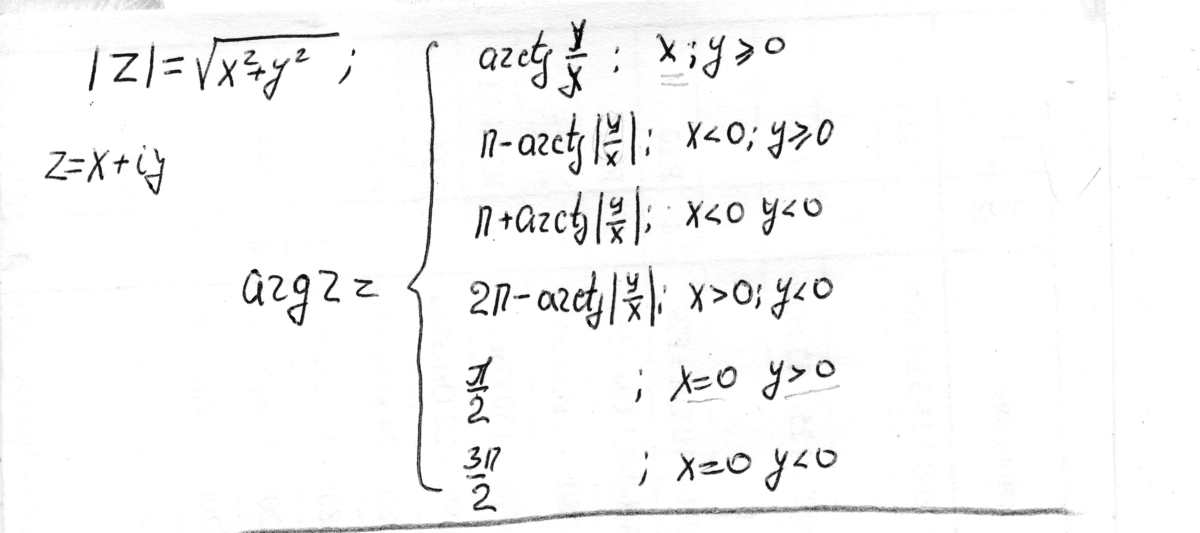 |z|=√x²+y² ;
z=x+iy
arg z =
arctg y/x ; x;y⩾0
π-arctg|y/x|; x<0; y⩾0
π+arctg|y/x|; x<0 y<0
2π-arctg|y/x|; x>0; y<0
π/2 ; x=0 y>0
3π/2 ; x=0 y<0